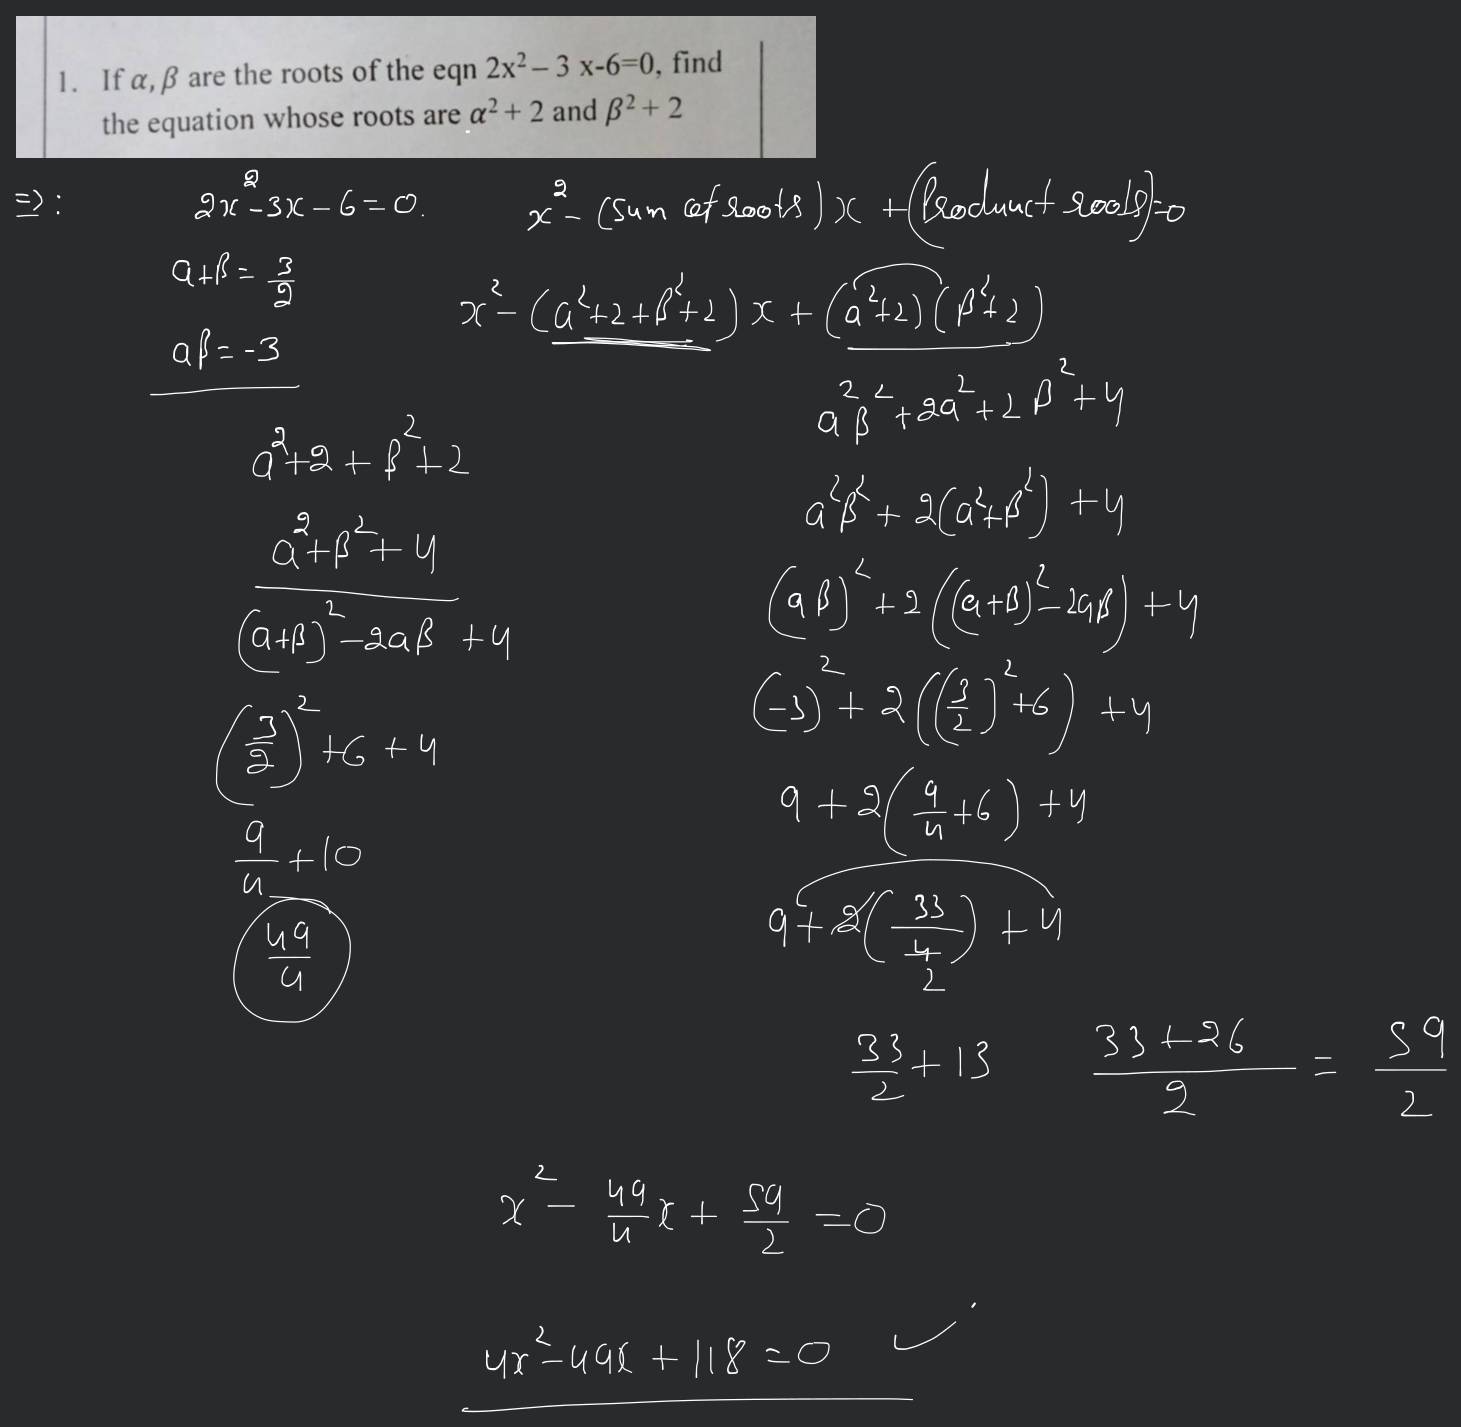 1. If α, β are the roots of the eqn 2x² – 3 x-6=0, find
the equation whose roots are α² + 2 and β² + 2
=>: 2x²-3x-6=0. x²-(Sum of roots)x+(Product roots)=0
α+β=3/2
αβ=-3
x²-(α²+2+β²+2)x+(α²+2)(β²+2)
α²+2+β²+2
α²+β²+4
(α+β)²-2αβ+4
(3/2)²+6+4
9/4+10
49/4
α²β²+2α²+2β²+4
α²β²+2(α²+β²)+4
(αβ)²+2((α+β)²-2αβ)+4
(-3)²+2((3/2)²+6)+4
9+2(9/4+6)+4
9+2(33/4)+4
2
33/2+13 (33+26)/2=59/2
x²-49/4x+59/2=0
4x²-49x+118=0 ✓